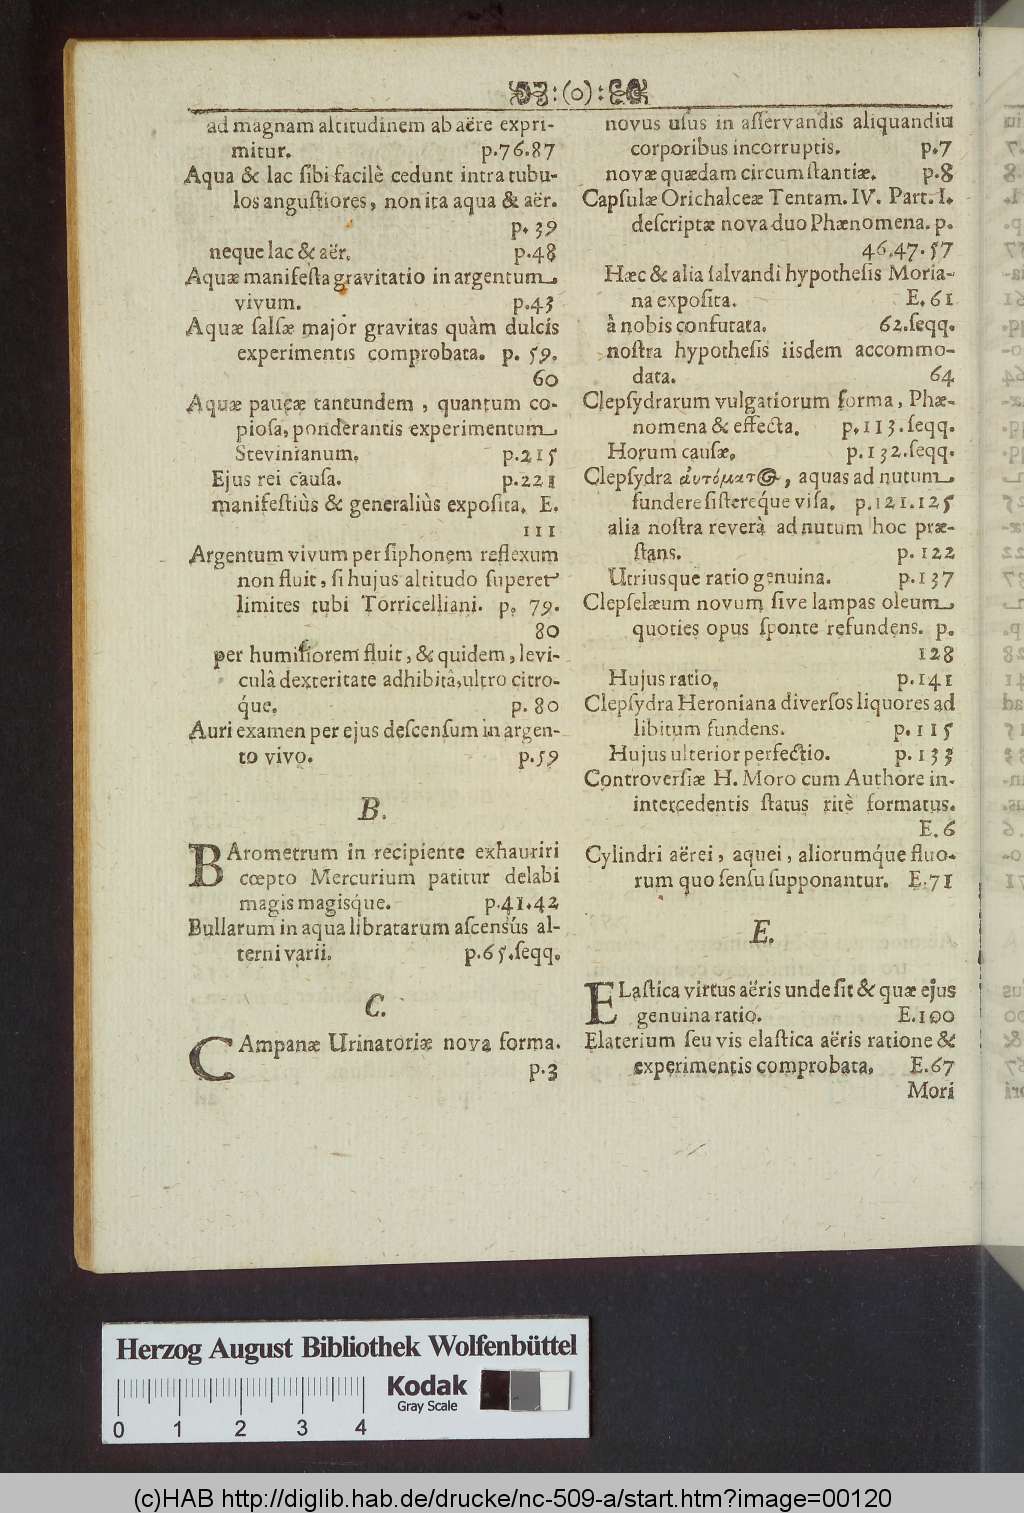 :(o):
ad magnam altitudinem ab aëre expri-
mitur. p.76.87
Aqua & lac ſibi facilè cedunt intra tubu-
los anguſtiores, non ita aqua & aër.
p. 39
neque lac & aër. p.48
Aquæ manifeſta gravitatio in argentum
vivum. p.43
Aquæ ſalſæ major gravitas quàm dulcis
experimentis comprobata. p. 59.
60
Aquæ paucæ tantundem, quantum co-
pioſa, ponderantis experimentum
Stevinianum. p.215
Ejus rei cauſa. p.221
manifeſtiùs & generaliùs expoſita. E.
111
Argentum vivum per ſiphonem reflexum
non fluit, ſi hujus altitudo ſuperet
limites tubi Torricelliani. p. 79.
80
per humiliorem fluit, & quidem, levi-
culâ dexteritate adhibitâ, ultro citro-
q́ue. p. 80
Auri examen per ejus deſcenſum in argen-
to vivo. p.59
B.
BArometrum in recipiente exhauriri
cœpto Mercurium patitur delabi
magis magisq́ue. p.41.42
Bullarum in aqua libratarum aſcensús al-
terni varii. p.65.ſeqq.
C.
CAmpanæ Urinatoriæ nova forma.
p.3
novus uſus in aſſervandis aliquandiu
corporibus incorruptis. p.7
novæ quædam circumſtantiæ. p.8
Capſulæ Orichalceæ Tentam. IV. Part. I.
deſcriptæ nova duo Phænomena. p.
46.47.57
Hæc & alia ſalvandi hypotheſis Moria-
na expoſita. E.61
à nobis confutata. 62.ſeqq.
noſtra hypotheſis iisdem accommo-
data. 64
Clepſydrarum vulgatiorum forma, Phæ-
nomena & effecta. p.113.ſeqq.
Horum cauſæ. p.132.ſeqq.
Clepſydra αὐτόματος, aquas ad nutum
fundere ſiſtereq́ue viſa. p.121.125
alia noſtra reverà ad nutum hoc præ-
ſtans. p. 122
Utriusque ratio genuina. p.137
Clepſelæum novum ſive lampas oleum
quoties opus ſponte refundens. p.
128
Hujus ratio. p.141
Clepſydra Heroniana diverſos liquores ad
libitum fundens. p.115
Hujus ulterior perfectio. p.133
Controverſiæ H. Moro cum Authore in-
intercedentis ſtatus ritè formatus.
E.6
Cylindri aërei, aquei, aliorumq́ue fluo-
rum quo ſenſu ſupponantur. E.71
E.
ELaſtica virtus aëris unde ſit & quæ ejus
genuina ratio. E.100
Elaterium ſeu vis elaſtica aëris ratione &
experimentis comprobata. E.67
Mori
Herzog August Bibliothek Wolfenbüttel
Kodak
Gray Scale
0 1 2 3 4
(c)HAB http://diglib.hab.de/drucke/nc-509-a/start.htm?image=00120